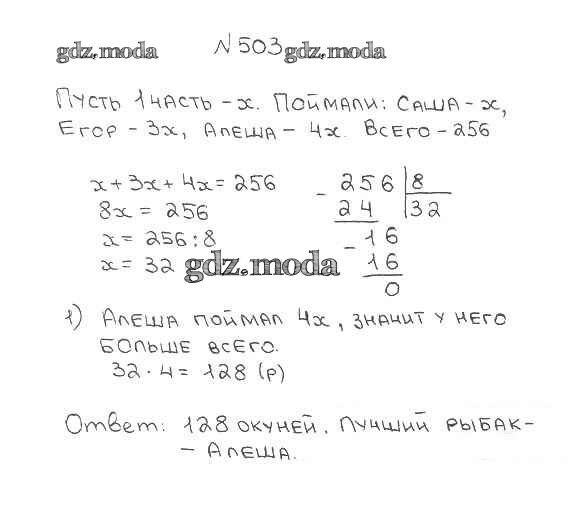 gdz.moda N 503 gdz.moda
Пусть 1 часть – x. Поймали: Саша – x,
Егор – 3x, Алеша – 4x. Всего – 256
x + 3x + 4x = 256
8x = 256
x = 256 : 8
x = 32
- 256 | 8
24 32
- 16
16
0
gdz.moda
1) Алеша поймал 4x, значит у него
больше всего.
32 · 4 = 128 (р)
Ответ: 128 окуней. Лучший рыбак –
– Алеша.